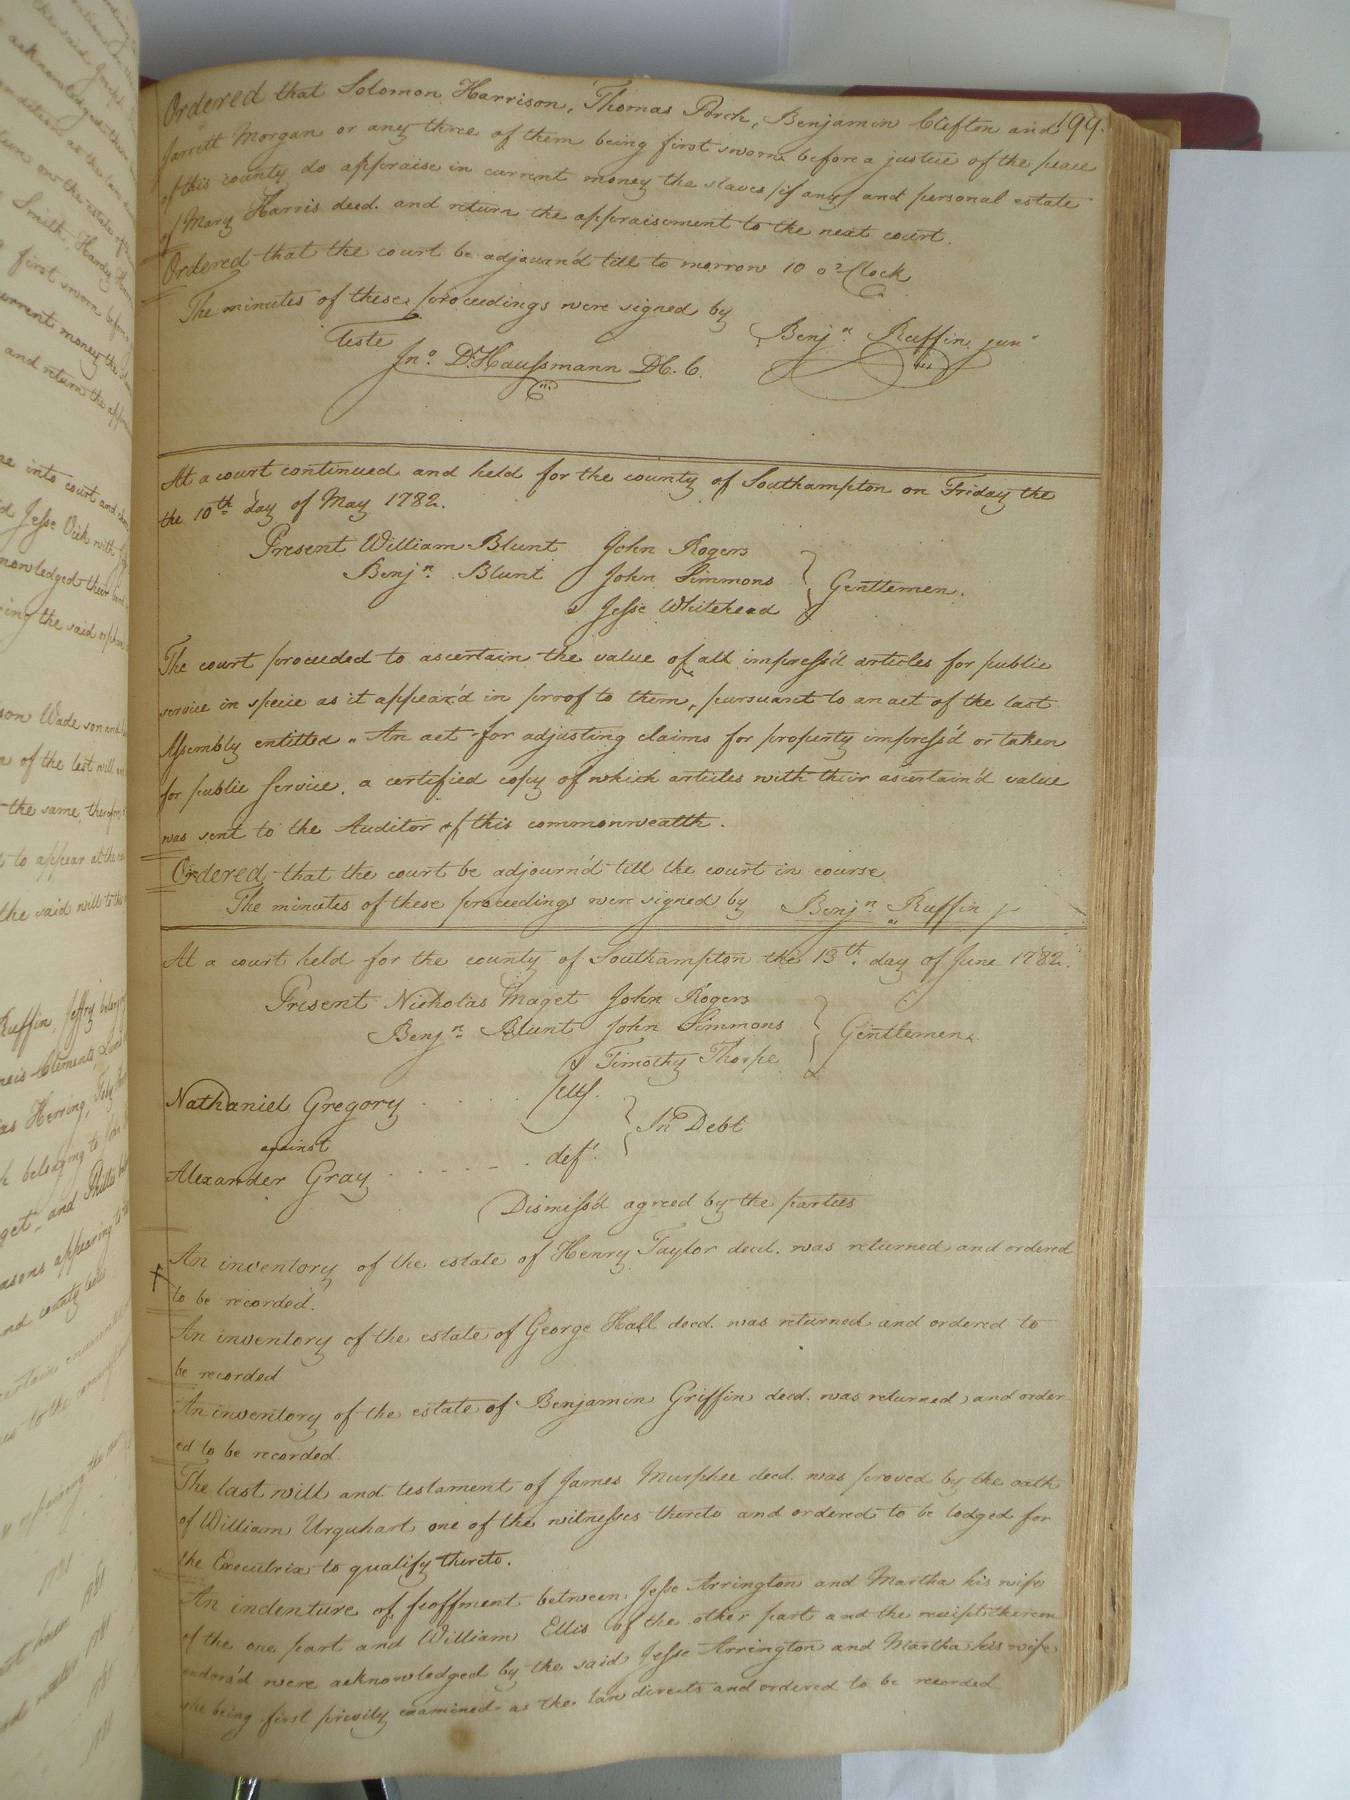 199.
Ordered that Solomon Harrison, Thomas Porch, Benjamin Clifton and
Jarrett Morgan or any three of them being first sworn before a justice of the peace
of this county do appraise in current money the slaves (if any) and personal estate
of Mary Harris decd. and return the appraisement to the next court.
Ordered that the court be adjourn'd till to morrow 10 o'Clock
The minutes of these proceedings were signed by
Benjn. Ruffin junr
Teste
Jno. D. Haussmann D.C.C.
At a court continued and held for the county of Southampton on Friday the
the 10th day of May 1782.
Present William Blunt John Rogers
Benjn. Blunt John Simmons } Gentlemen.
& Jesse Whitehead
The court proceeded to ascertain the value of all impress'd articles for public
service in specie as it appear'd in proof to them, pursuant to an act of the last
Assembly entitled " An act for adjusting claims for property impress'd or taken
for public Service, a certified copy of which articles with their ascertain'd value
was sent to the Auditor of this commonwealth.
Ordered that the court be adjourn'd till the court in course
The minutes of these proceedings were signed by Benjn. Ruffin j
At a court held for the county of Southampton the 13th. day of June 1782.
Present Nicholas Maget John Rogers
Benjn. Blunt John Simmons } Gentlemen.
& Timothy Thorpe
Nathaniel Gregory . . . . . plt.
against } In Debt
Alexander Gray . . . . . . deft.
Dismiss'd agreed by the parties
An inventory of the estate of Henry Taylor decd. was returned and ordered
to be recorded.
An inventory of the estate of George Hall decd. was returned and ordered to
be recorded
An inventory of the estate of Benjamin Griffin decd. was returned and order
ed to be recorded
The last will and testament of James Murphee decd. was proved by the oath
of William Urquhart one of the witnesses thereto and ordered to be lodged for
the Executrix to qualify thereto.
An indenture of feoffment between Jesse Arrington and Martha his wife
of the one part and William Ellis of the other part and the receipt thereon
endors'd were acknowledged by the said Jesse Arrington and Martha his wife,
she being first privily examined as the law directs and ordered to be recorded